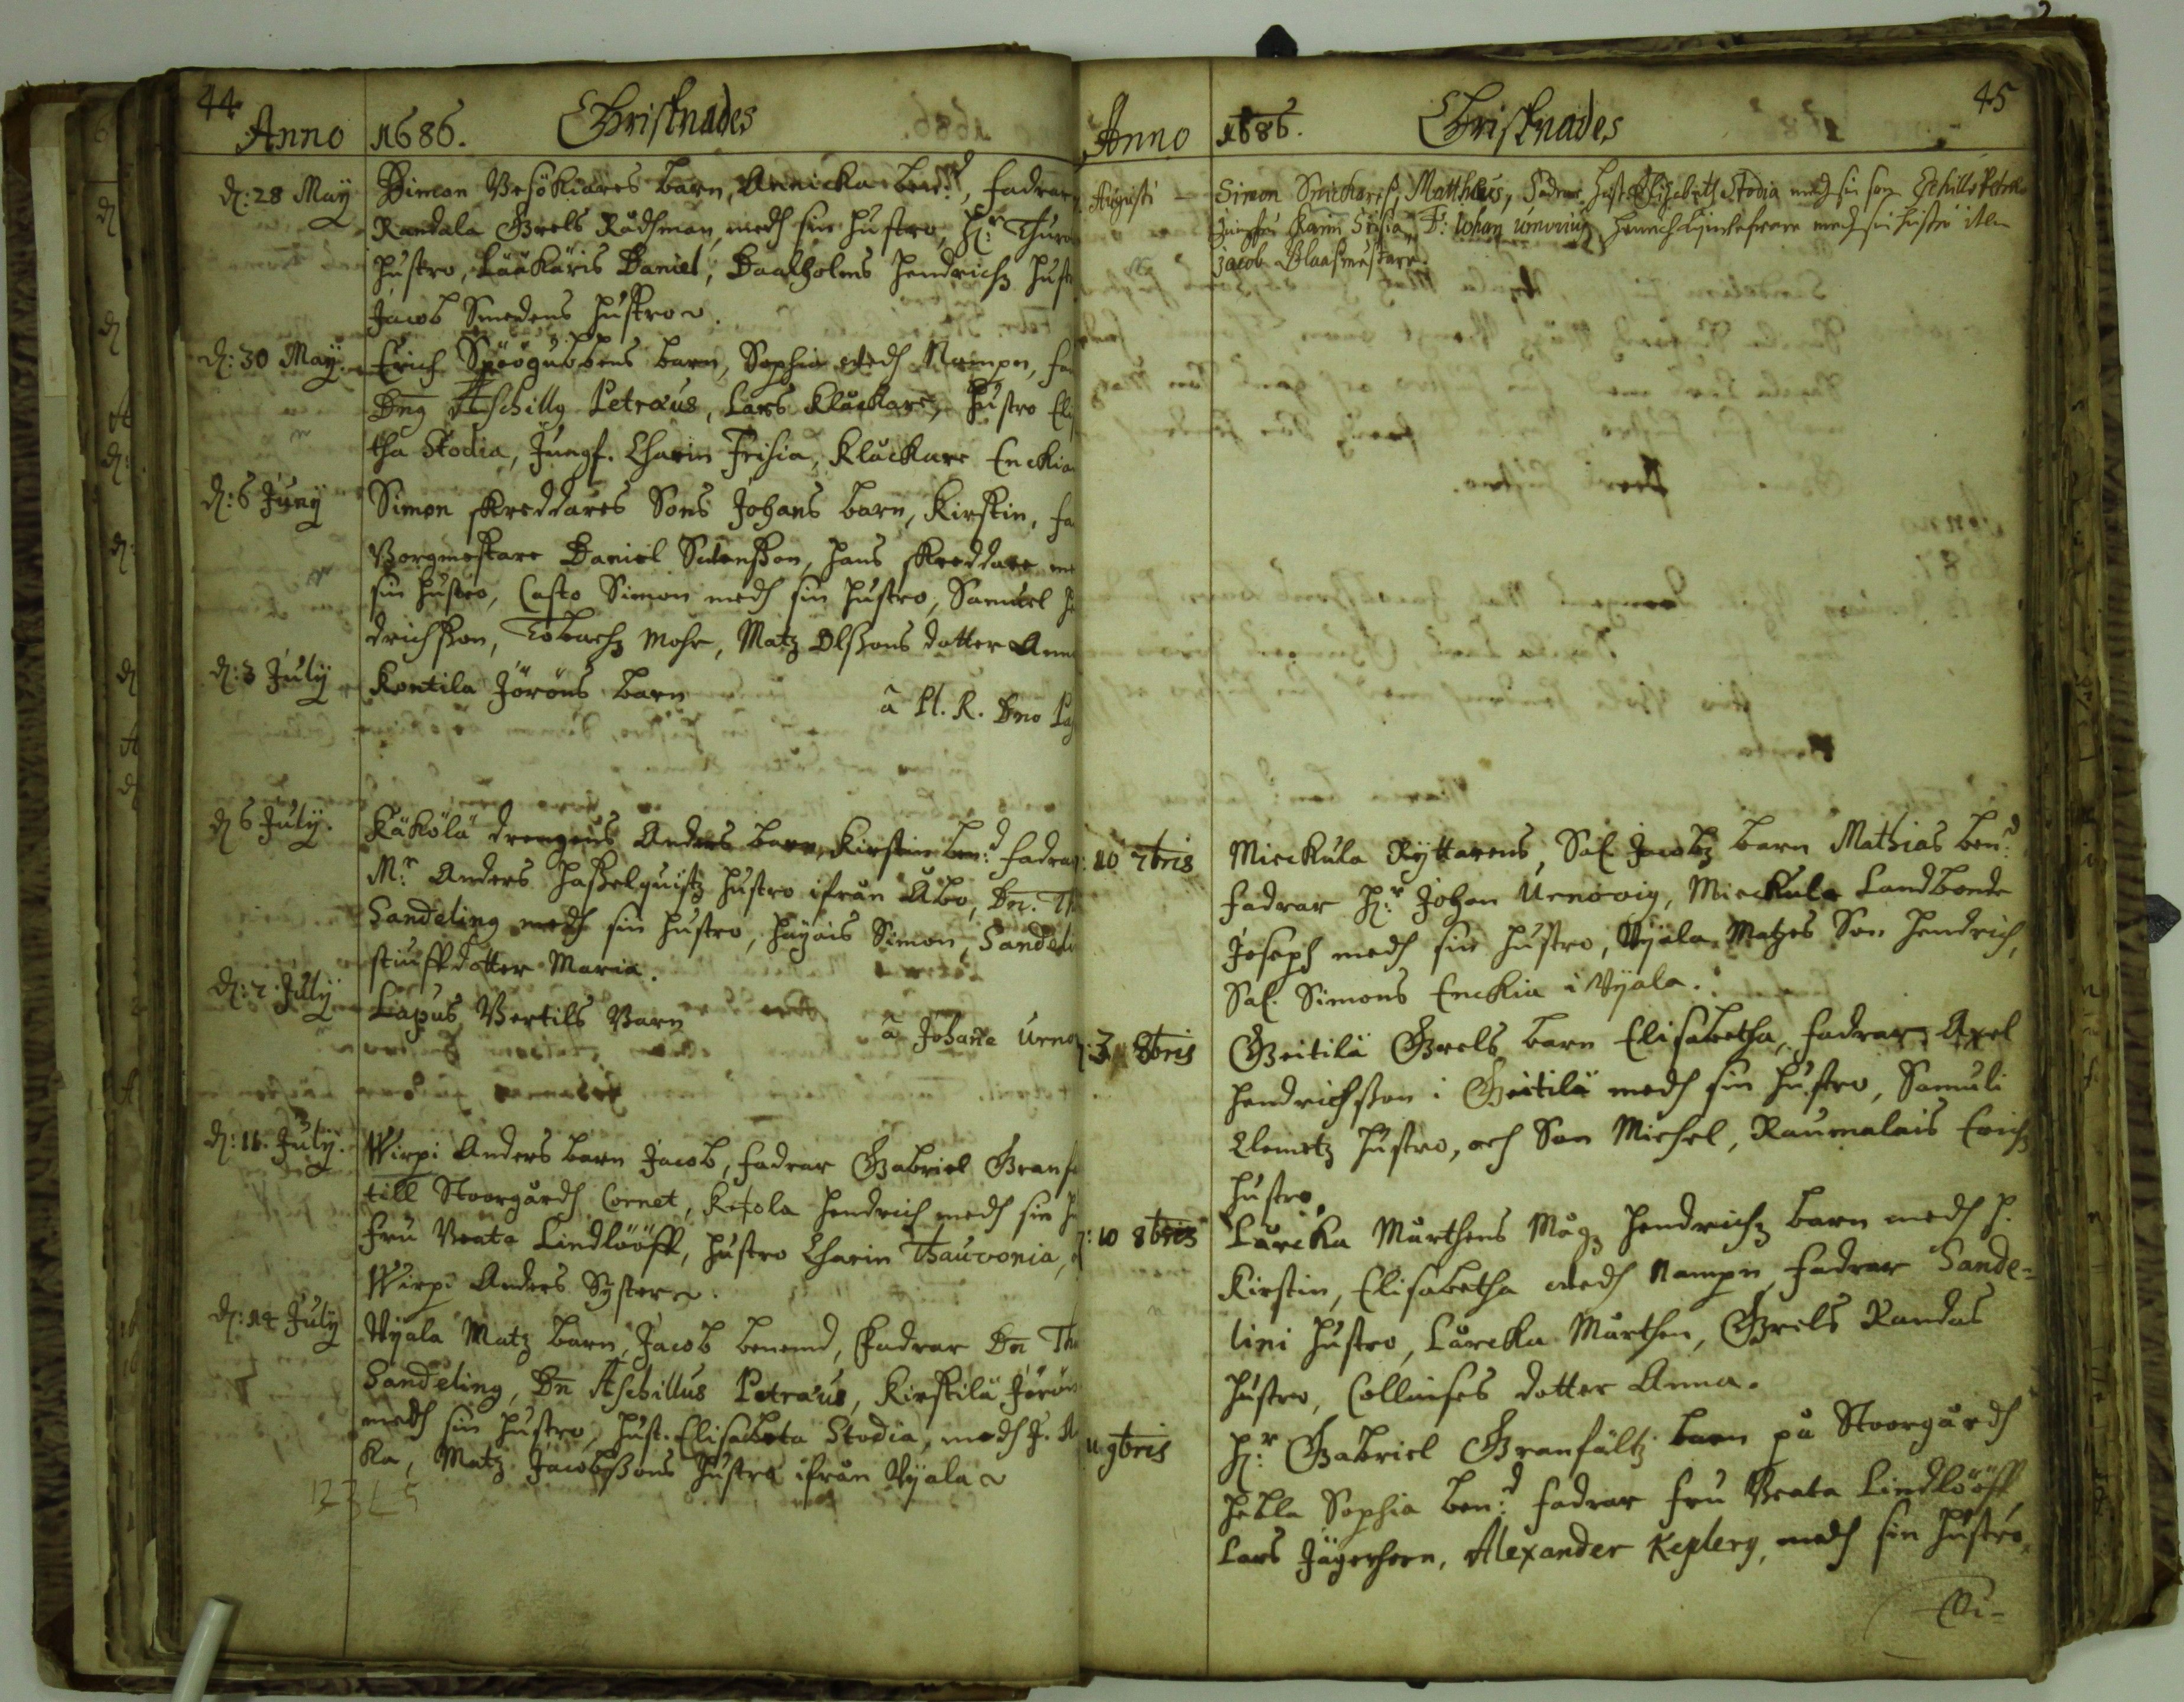 44
Anno 1686. Christnades
d: 28 May Simon Besökiares barn, Annicka ben:d, fadrar
Randala Grels Rådhman, medh sin hustro, H:r Thure
hustro, Lääkäris Daniel, Daalholms Hendrichz hust
Jacob Smedens hustro.
d: 30 May Erich Spöögubbens barn, Sophia medh Nampn, fad
Dng Æschillg Petræus, Lars Klåckare, hustro Eli
tha Stodia, Jungf. Charin Frisia, Klåckare Enckia
d: 6 Juny Simon skreddares Sons Johans barn, Kirstin, fa
Borgmestare Daniel Sulensson, Hans skreddare me
sin hustro, Casto Simon medh sin hustro, Samuel He
drichsson, Tobachz Mohr, Matz Olssons dotter Anna
d: 3 July Kontila Jöröns barn
à Pl. R. Dno Pa
d 6 July. Käkölä drengens Anders barn, Kirstin ben:d fadrar
M:r Anders Hasselquistz hustro ifrån Åbo, Dn. Th
Sandeling medh sin hustro, Häyäis Simon, Sandel
stiuffdotter Maria.
d: 7 July Lapus Bertils Barn
à Johane Urno
d: 11. July. Wirpi Anders barn Jacob, fadrar Gabriel Granf
till Storgårdh Cornet, Ketola Hendrich medh sin h
fru Beata Lindlööff, hustro Charin Thauvonia,
Wirpi Anders Syster.
d: 14 July Wjala Matz barn, Jacob benemd, fadrar Dn Th
Sandeling, Dn Æschillus Petræus, Kirstilä Jörön
medh sin hustro, hust. Elisabeta Stodia, medh J. A
ka, Matz Jacobssons hustro ifrån Wjala
45
Anno 1686. Christnades
Augusti Simon Snickares, Mattheus, Fadrar Hust. Elizabeth Stodia medh sin son Eschillo Petræo
Jungfru Karin Frisia, F: Johan Urnovius, Henrich medh sin hustro item
Jacob Blaasmästare.
: 10 7bris Mieckula Ryttarens, Sal. Jacobz barn Mathias ben:d
fadrar H:r Johan Urnovig, Mieckula Landbonde
Joseph medh sin hustro, Wjala Matzes Son Hendrich,
Sal. Simons Enckia i Wjala.
: 3 8bris Geitilä Grels barn Elisabetha, fadrar Axel
Hendrichsson i Geitilä medh sin hustro, Samuli
Clemetz hustro, och Son Michel, Raumalais Erichz
hustro.
: 10 8bris Lurcka Mårthens Mågz Hendrichz barn medh h.
Kirstin, Elisabetha medh Nampn, fadrar Sande=
lini hustro, Lårcka Mårthen, Grels Randas
hustro, Collinses dotter Anna.
11 9bris H:r Gabriel Granfältz barn på Storgårdh
Hebla Sophia ben:d fadrar fru Beata Lindlööff
Lars Jägerhorn, Alexander Keplerg, medh sin hustro,